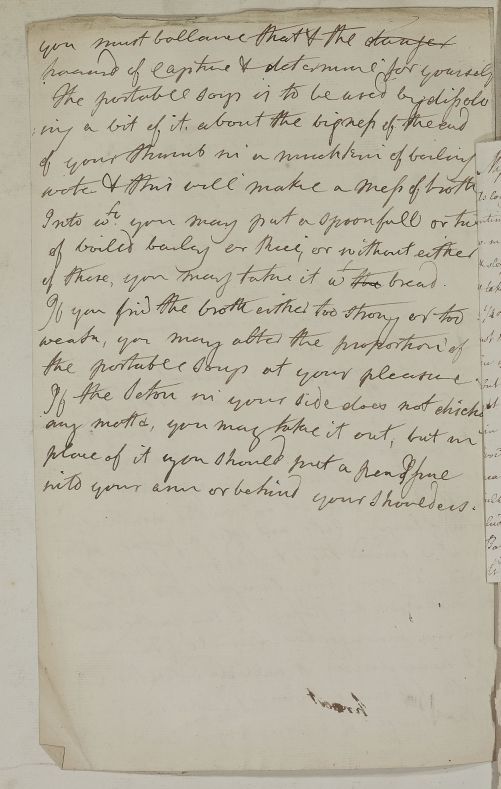 you must ballance that & the danger
hazard of capture & determine for yourself
The portable soup is to be used by dissolv
ing a bit of it about the bigness of the end
of your thumb in a mutchkin of boiling
water & this will make a mess of broth
Into wch you may put a spoonfull or two
of boiled barley or rice, or without either
of these, you may take it wt the bread.
If you find the broth either too strong or too
weak, you may alter the proportion of
the portable soup at your pleasure
If the Seton in your side does not discha
any matter, you may take it out, but in
place of it you should put a pea Issue
into your arm or behind your shoulders.